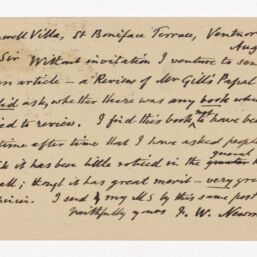 well Villa, St Boniface Terrace, Ventnor
Aug
Sir Without invitation I venture to sen
an article – a Review of Mr Gill's Papal
did ask, whether there was any book whi
to review. I find this book not to have been
time after time that I have asked people
it has been little noticed in the general
all; though it has great merit – very great
I send my MS by this same post
faithfully yours F. W. Newm